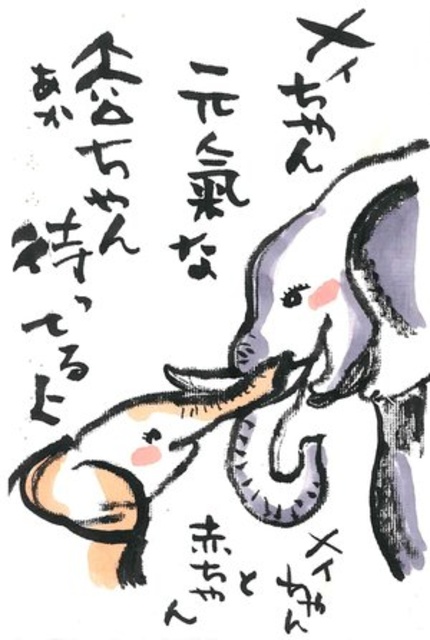 メイちゃん
元氣な
赤ちゃん
あか
待ってるよ
メイちゃん
と
赤ちゃん